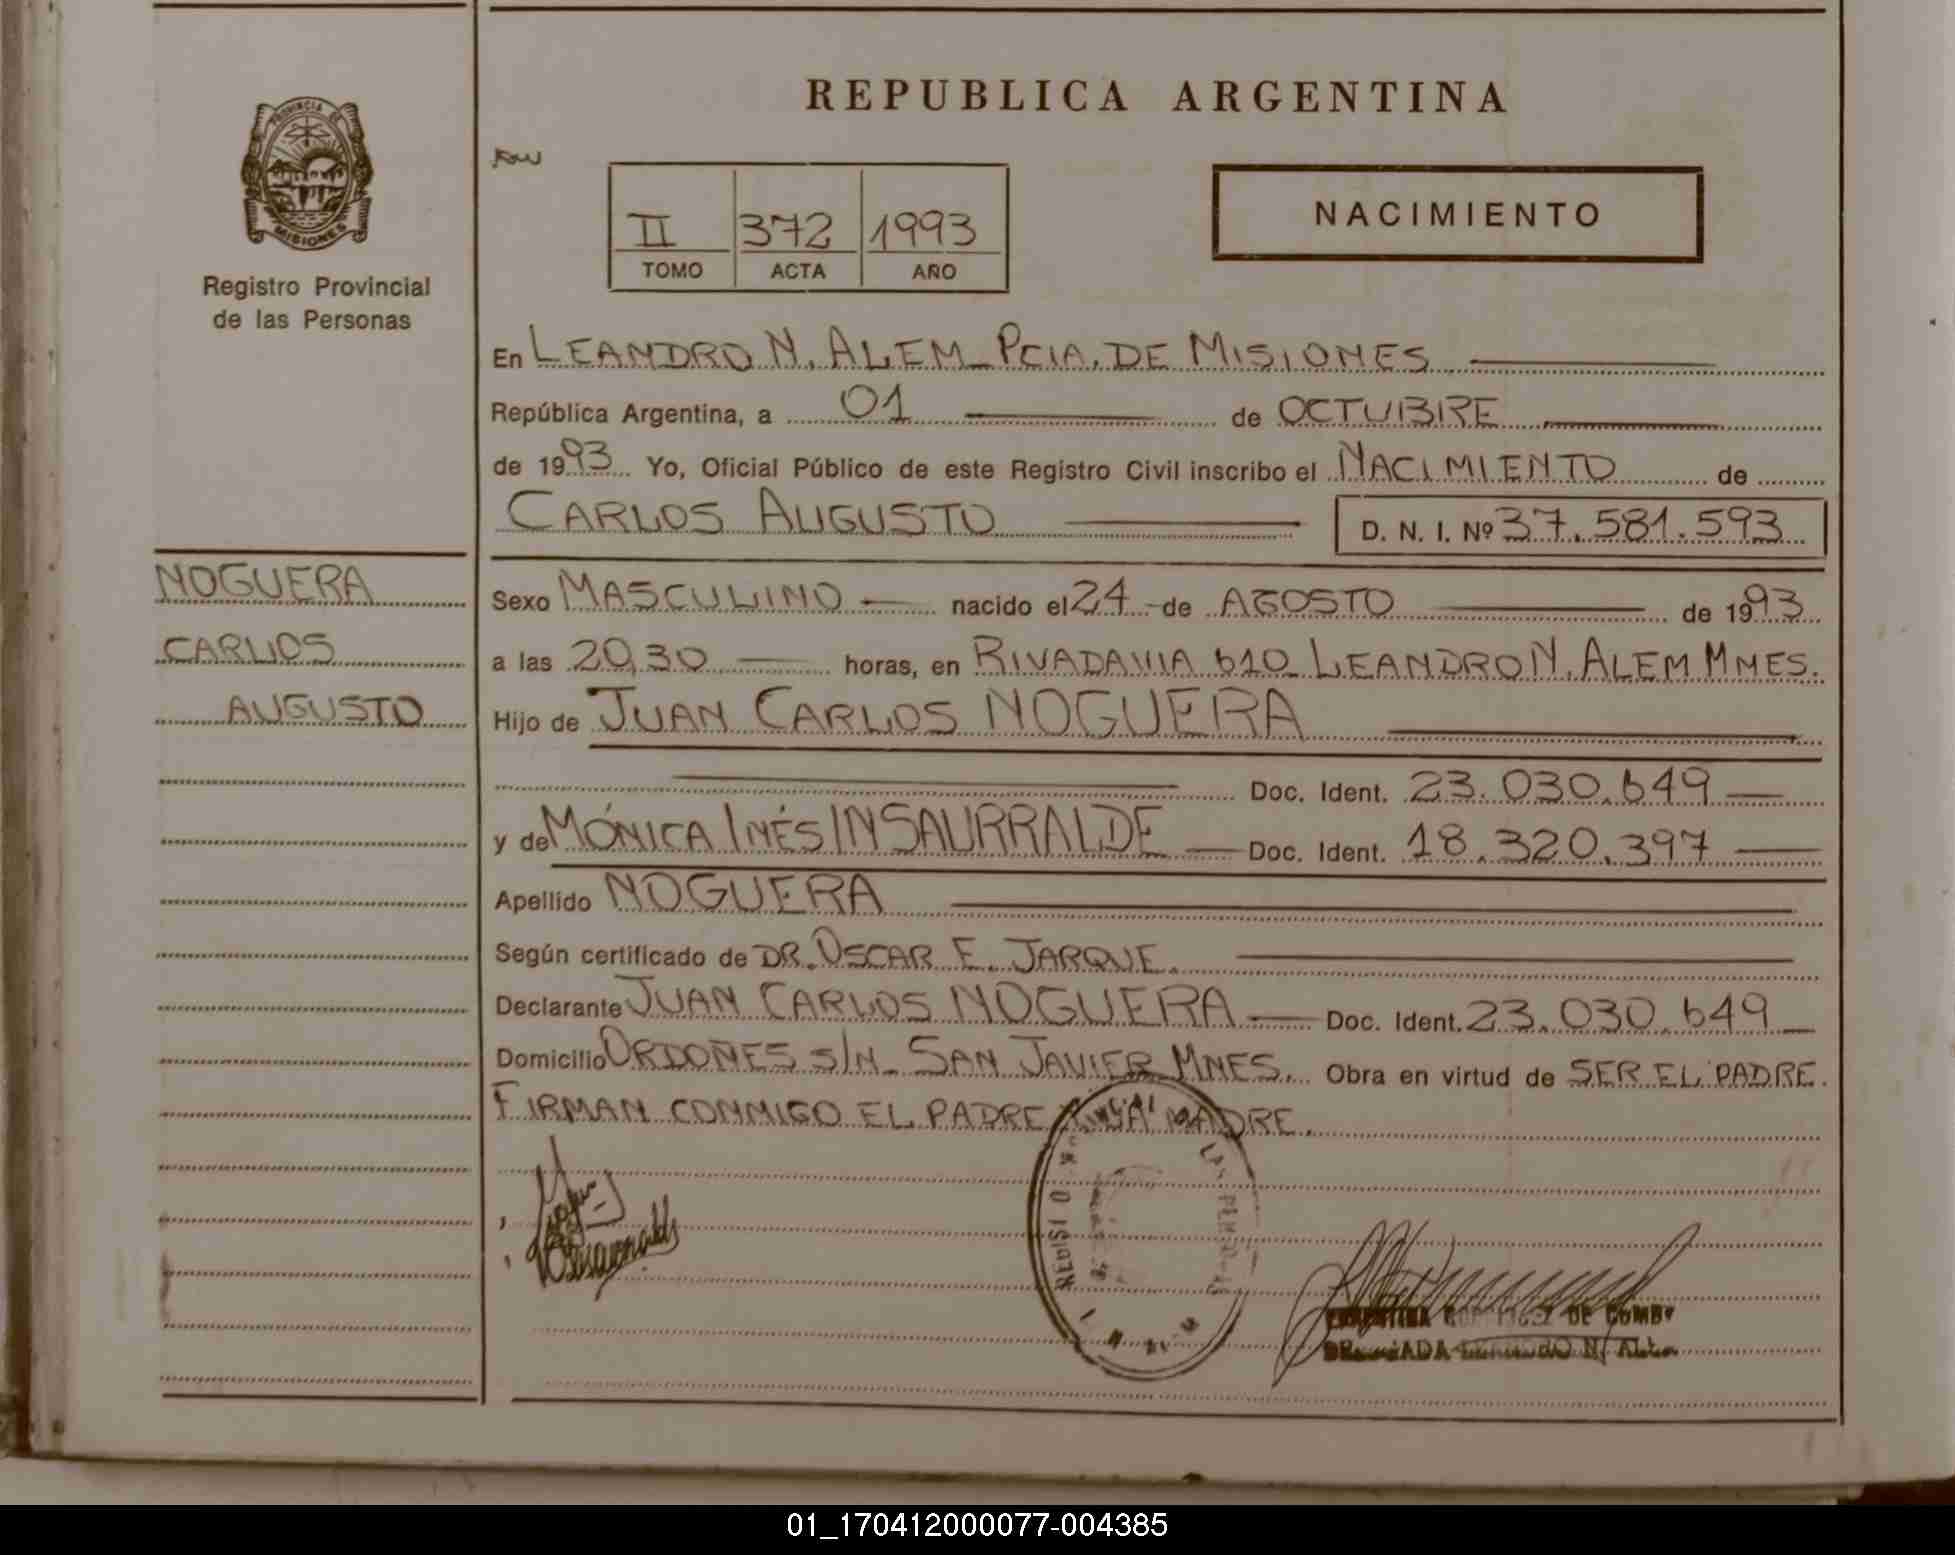 REPUBLICA ARGENTINA
PROVINCIA DE
MISIONES
Registro Provincial
de las Personas
II 372 1993
TOMO ACTA AÑO
NACIMIENTO
En LEANDRO N. ALEM_PCIA. DE MISIONES
República Argentina, a 01 de OCTUBRE
de 1993 Yo, Oficial Público de este Registro Civil inscribo el NACIMIENTO de
CARLOS AUGUSTO D. N. I. Nº 37.581.593
NOGUERA
CARLOS
AUGUSTO
Sexo MASCULINO nacido el 24 de AGOSTO de 1993
a las 20,30 horas, en RIVADAVIA 610_LEANDRO N. ALEM MNES.
Hijo de JUAN CARLOS NOGUERA
Doc. Ident. 23.030.649
y de MÓNICA INÉS INSAURRALDE Doc. Ident. 18.320.397
Apellido NOGUERA
Según certificado de DR. OSCAR E. JARQUE.
Declarante JUAN CARLOS NOGUERA Doc. Ident. 23.030.649
Domicilio ORDOÑES S/N_ SAN JAVIER MNES. Obra en virtud de SER EL PADRE.
FIRMAN CONMIGO EL PADRE LA MADRE.
DE GOMBY
01_170412000077-004385